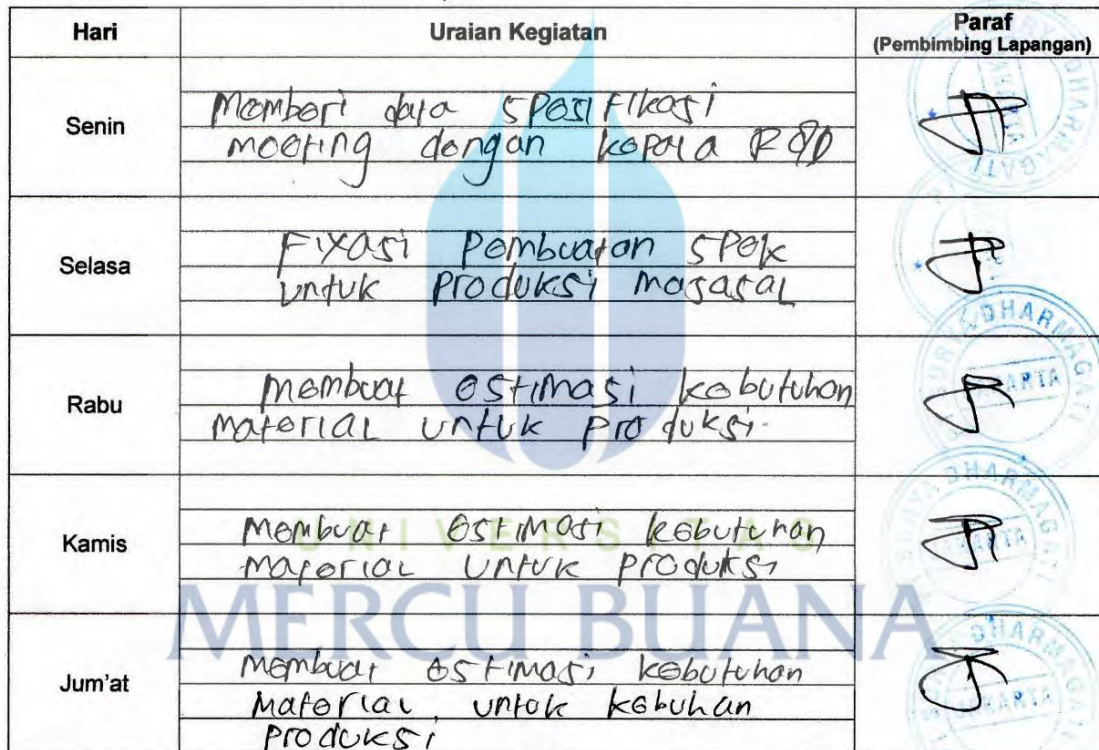 Hari
Uraian Kegiatan
Paraf
(Pembimbing Lapangan)
Senin
Memberi data spesifikasi
meeting dengan kepala R&D
Selasa
Fixasi pembuatan spek
untuk produksi masasal
Rabu
membuat estimasi kebutuhan
material untuk produksi.
Kamis
Membuat estimasi kebutuhan
material untuk produksi
Jum'at
membuat estimasi kebutuhan
material untuk kebuhan
produksi
UNIVERSITAS
MERCU BUANA
SURYA DHARMAGATI
JAKARTA